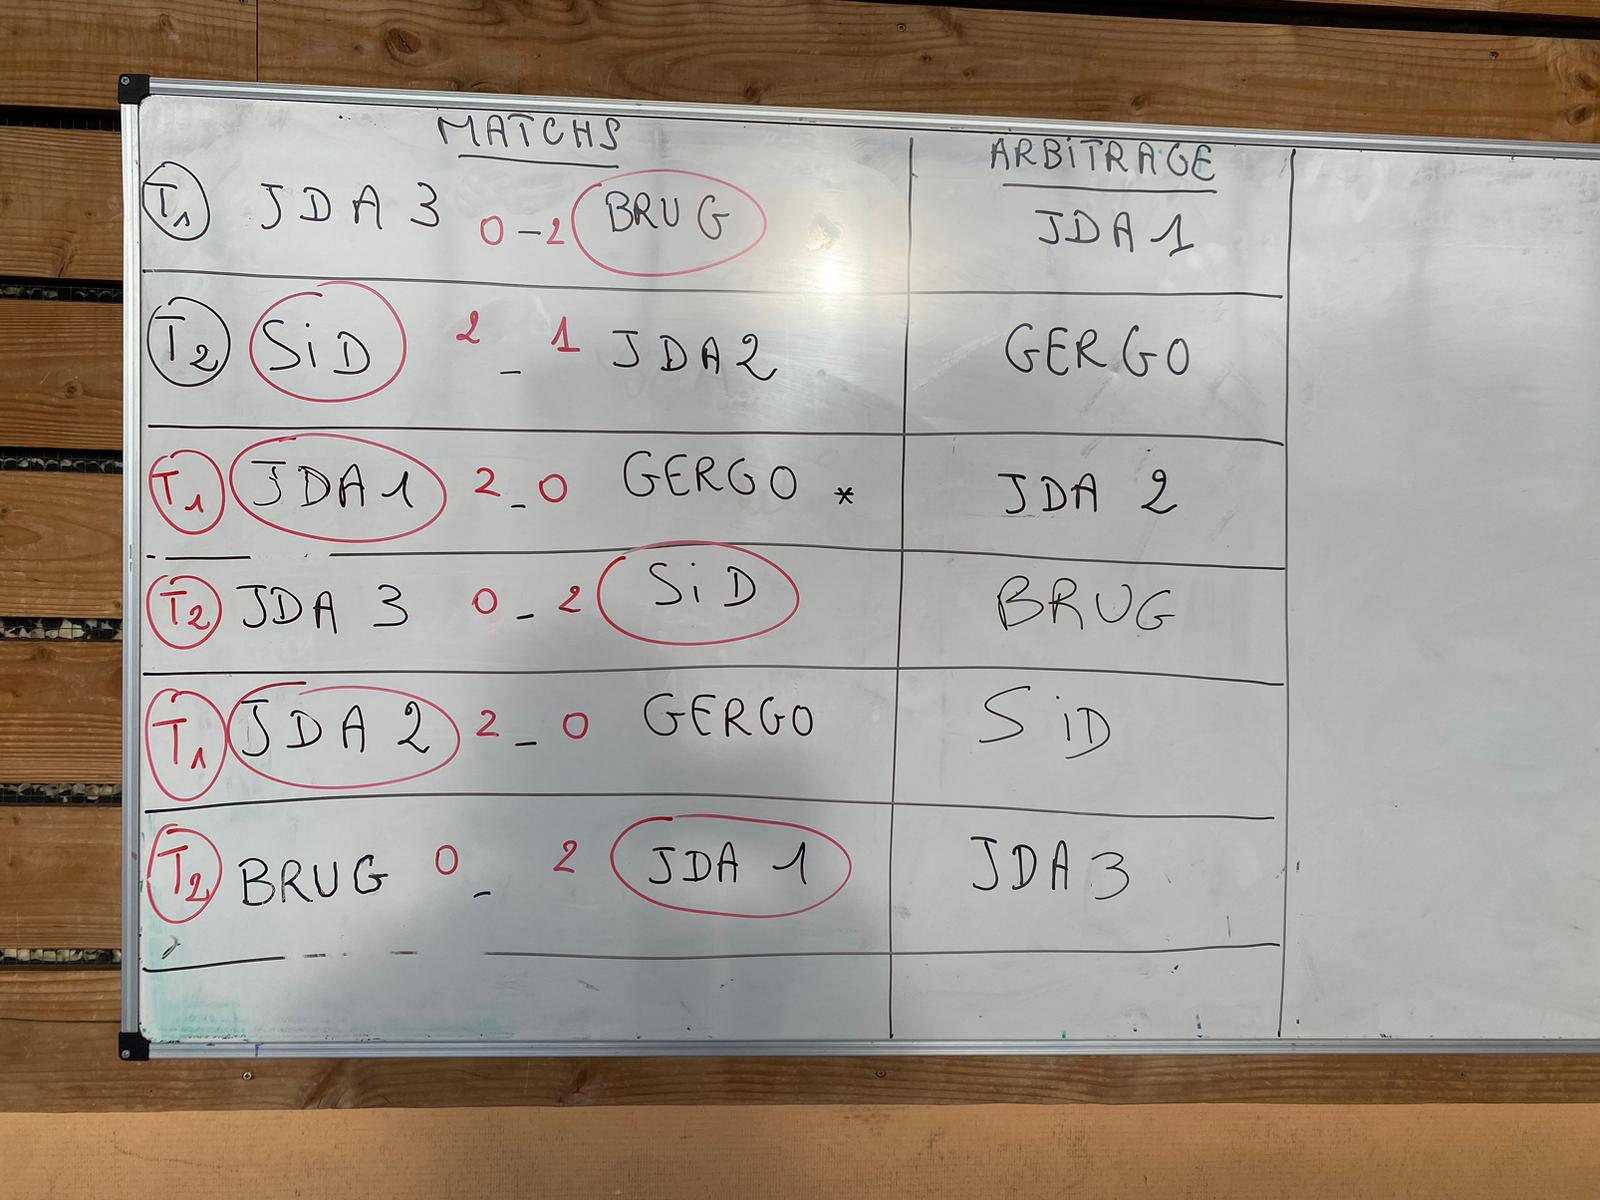 MATCHS ARBiTRAGE
T1 JDA 3 0-2 BRUG JDA1
T2 SiD 2 - 1 JDA2 GERGO
T1 JDA1 2-0 GERGO * JDA 2
T2 JDA 3 0-2 SiD BRUG
T1 JDA 2 2-0 GERGO SiD
T2 BRUG 0 - 2 JDA 1 JDA3